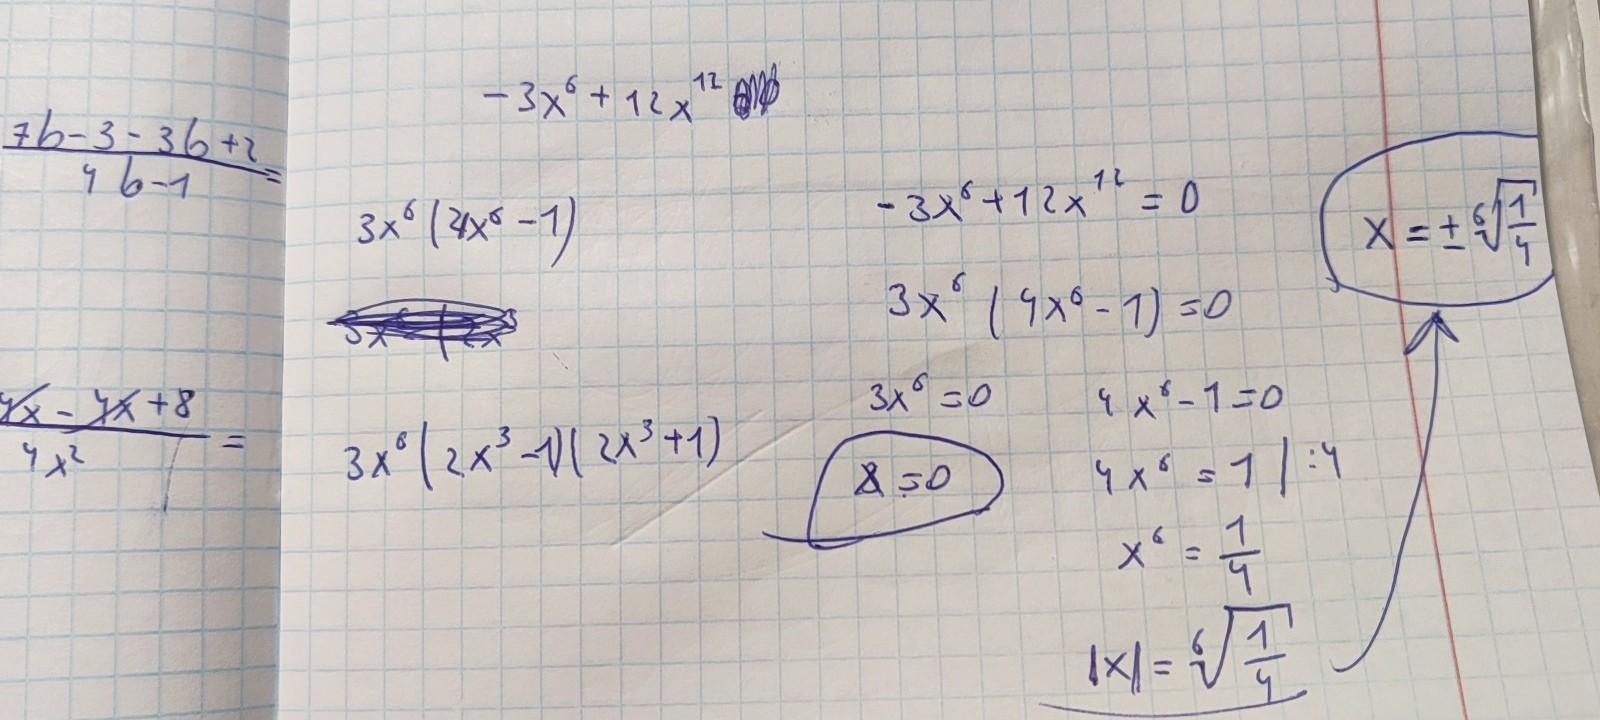 7b-3-3b+2
4b-1 =
4x-4x+8
4x² =
-3x⁶+12x¹²
3x⁶(4x⁶-1)
3x⁶(2x³-1)(2x³+1)
-3x⁶+12x¹²=0
3x⁶(4x⁶-1)=0
3x⁶=0 4x⁶-1=0
x=0 4x⁶=1|:4
x⁶=1/4
|x|=⁶√1/4
x=±⁶√1/4